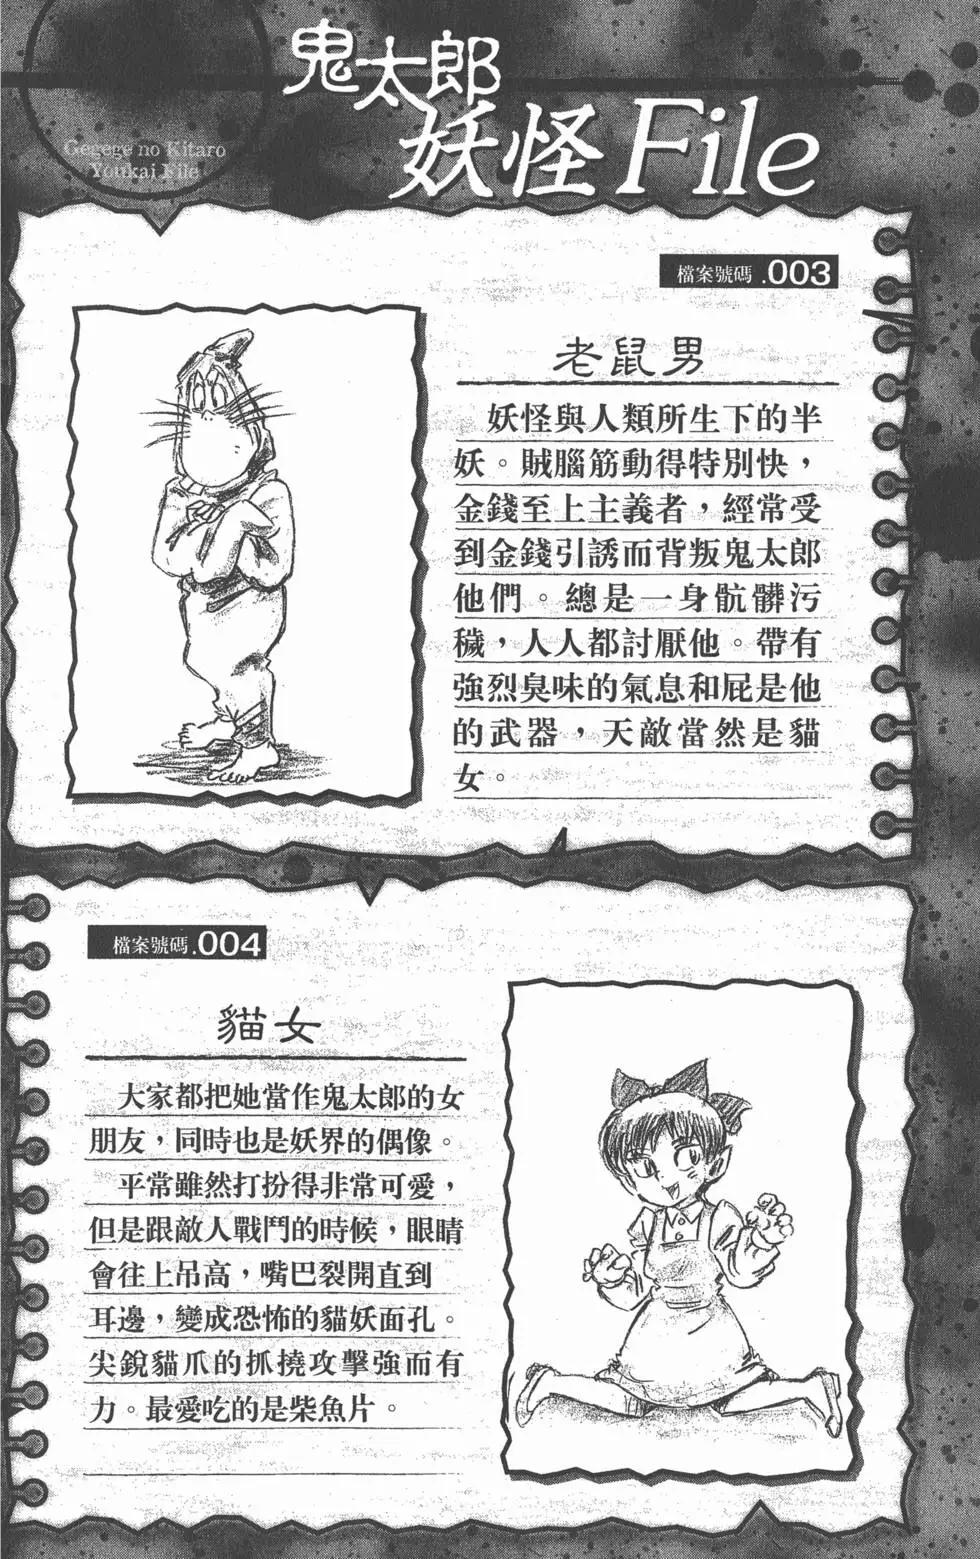 鬼太郎
妖怪File
Gegege no Kitaro
Youkai File
檔案號碼.003
老鼠男
妖怪與人類所生下的半
妖。賊腦筋動得特別快，
金錢至上主義者，經常受
到金錢引誘而背叛鬼太郎
他們。總是一身骯髒污
穢，人人都討厭他。帶有
強烈臭味的氣息和屁是他
的武器，天敵當然是貓
女。
檔案號碼.004
貓女
大家都把她當作鬼太郎的女
朋友，同時也是妖界的偶像。
平常雖然打扮得非常可愛，
但是跟敵人戰鬥的時候，眼睛
會往上吊高，嘴巴裂開直到
耳邊，變成恐怖的貓妖面孔。
尖銳貓爪的抓撓攻擊強而有
力。最愛吃的是柴魚片。